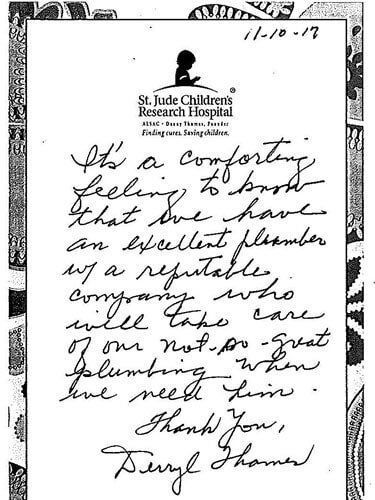 11-10-17
St. Jude Children's
Research Hospital
ALSAC • Danny Thomas, Founder
Finding cures. Saving children.
It's a comforting
feeling to know
that we have
an excellent plumber
w/ a reputable
company who
will take care
of our not-so-great
plumbing when
we need him.
Thank You,
Derryl Thames